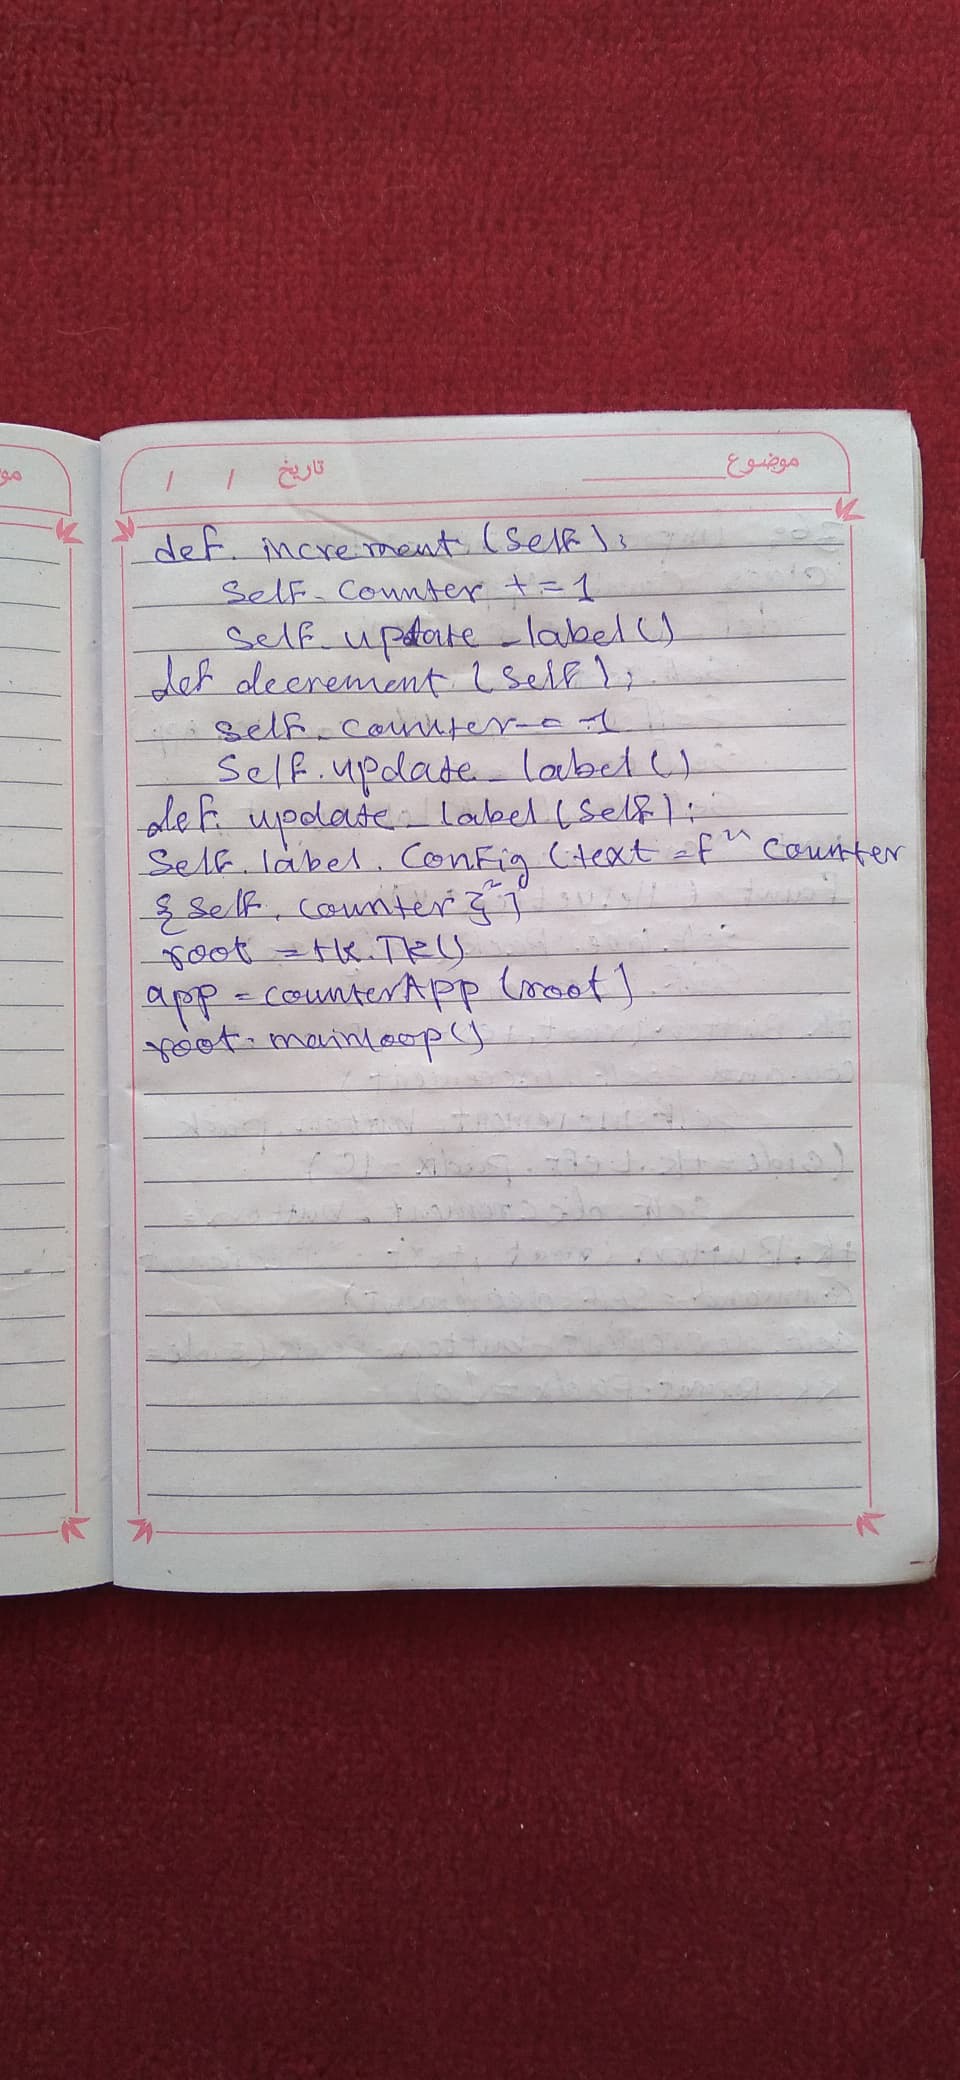 موضوع تاریخ / /
def. increment (self):
self. counter += 1
self. update_label()
def decrement (self):
self. counter -= 1
self. update_label()
def. update_label (self):
self. label. config (text = f" counter
{self. counter}")
root = tk.Tk()
app = counterApp (root)
root. mainloop()